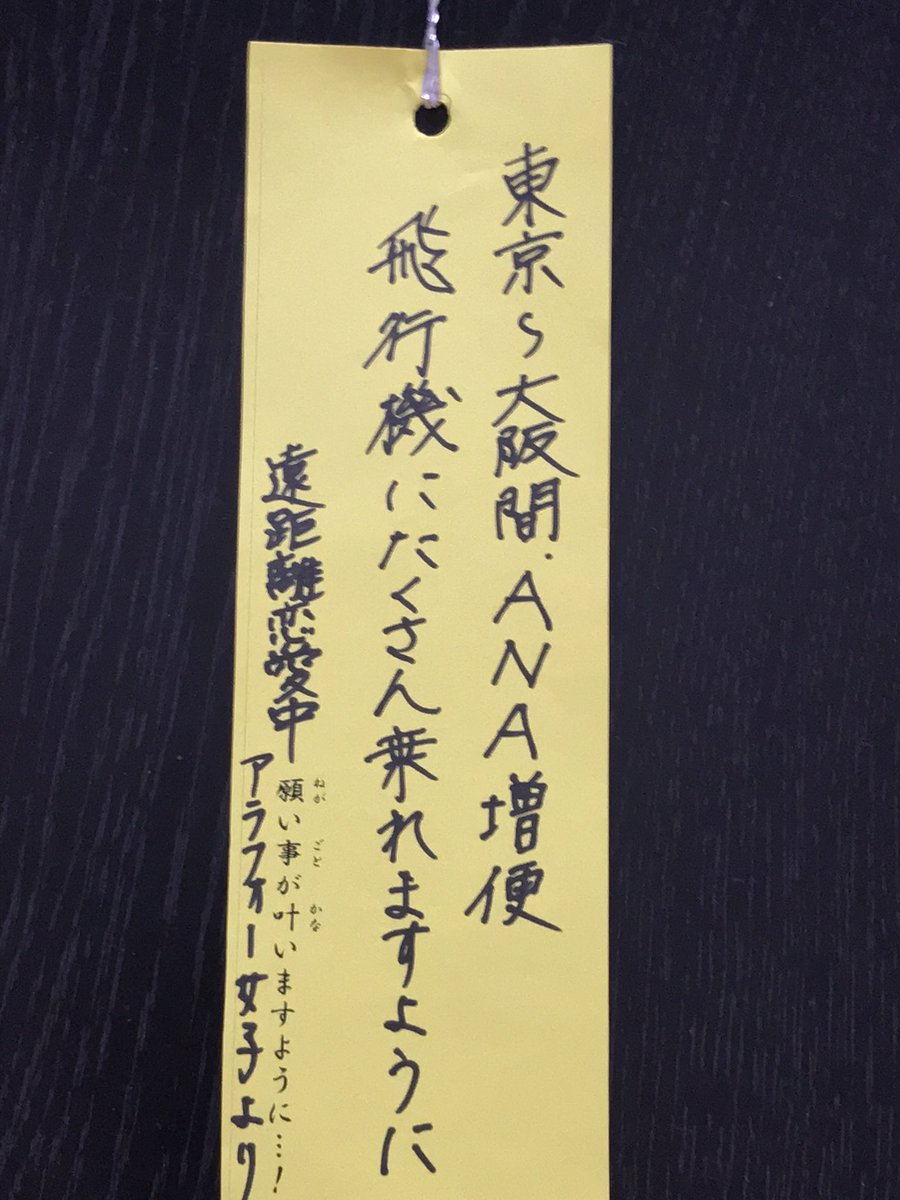 東京〜大阪間.ANA増便
飛行機にたくさん乗れますように
遠距離恋愛中
願い事が叶いますように…!
ねが ごと かな
アラフォー女子より